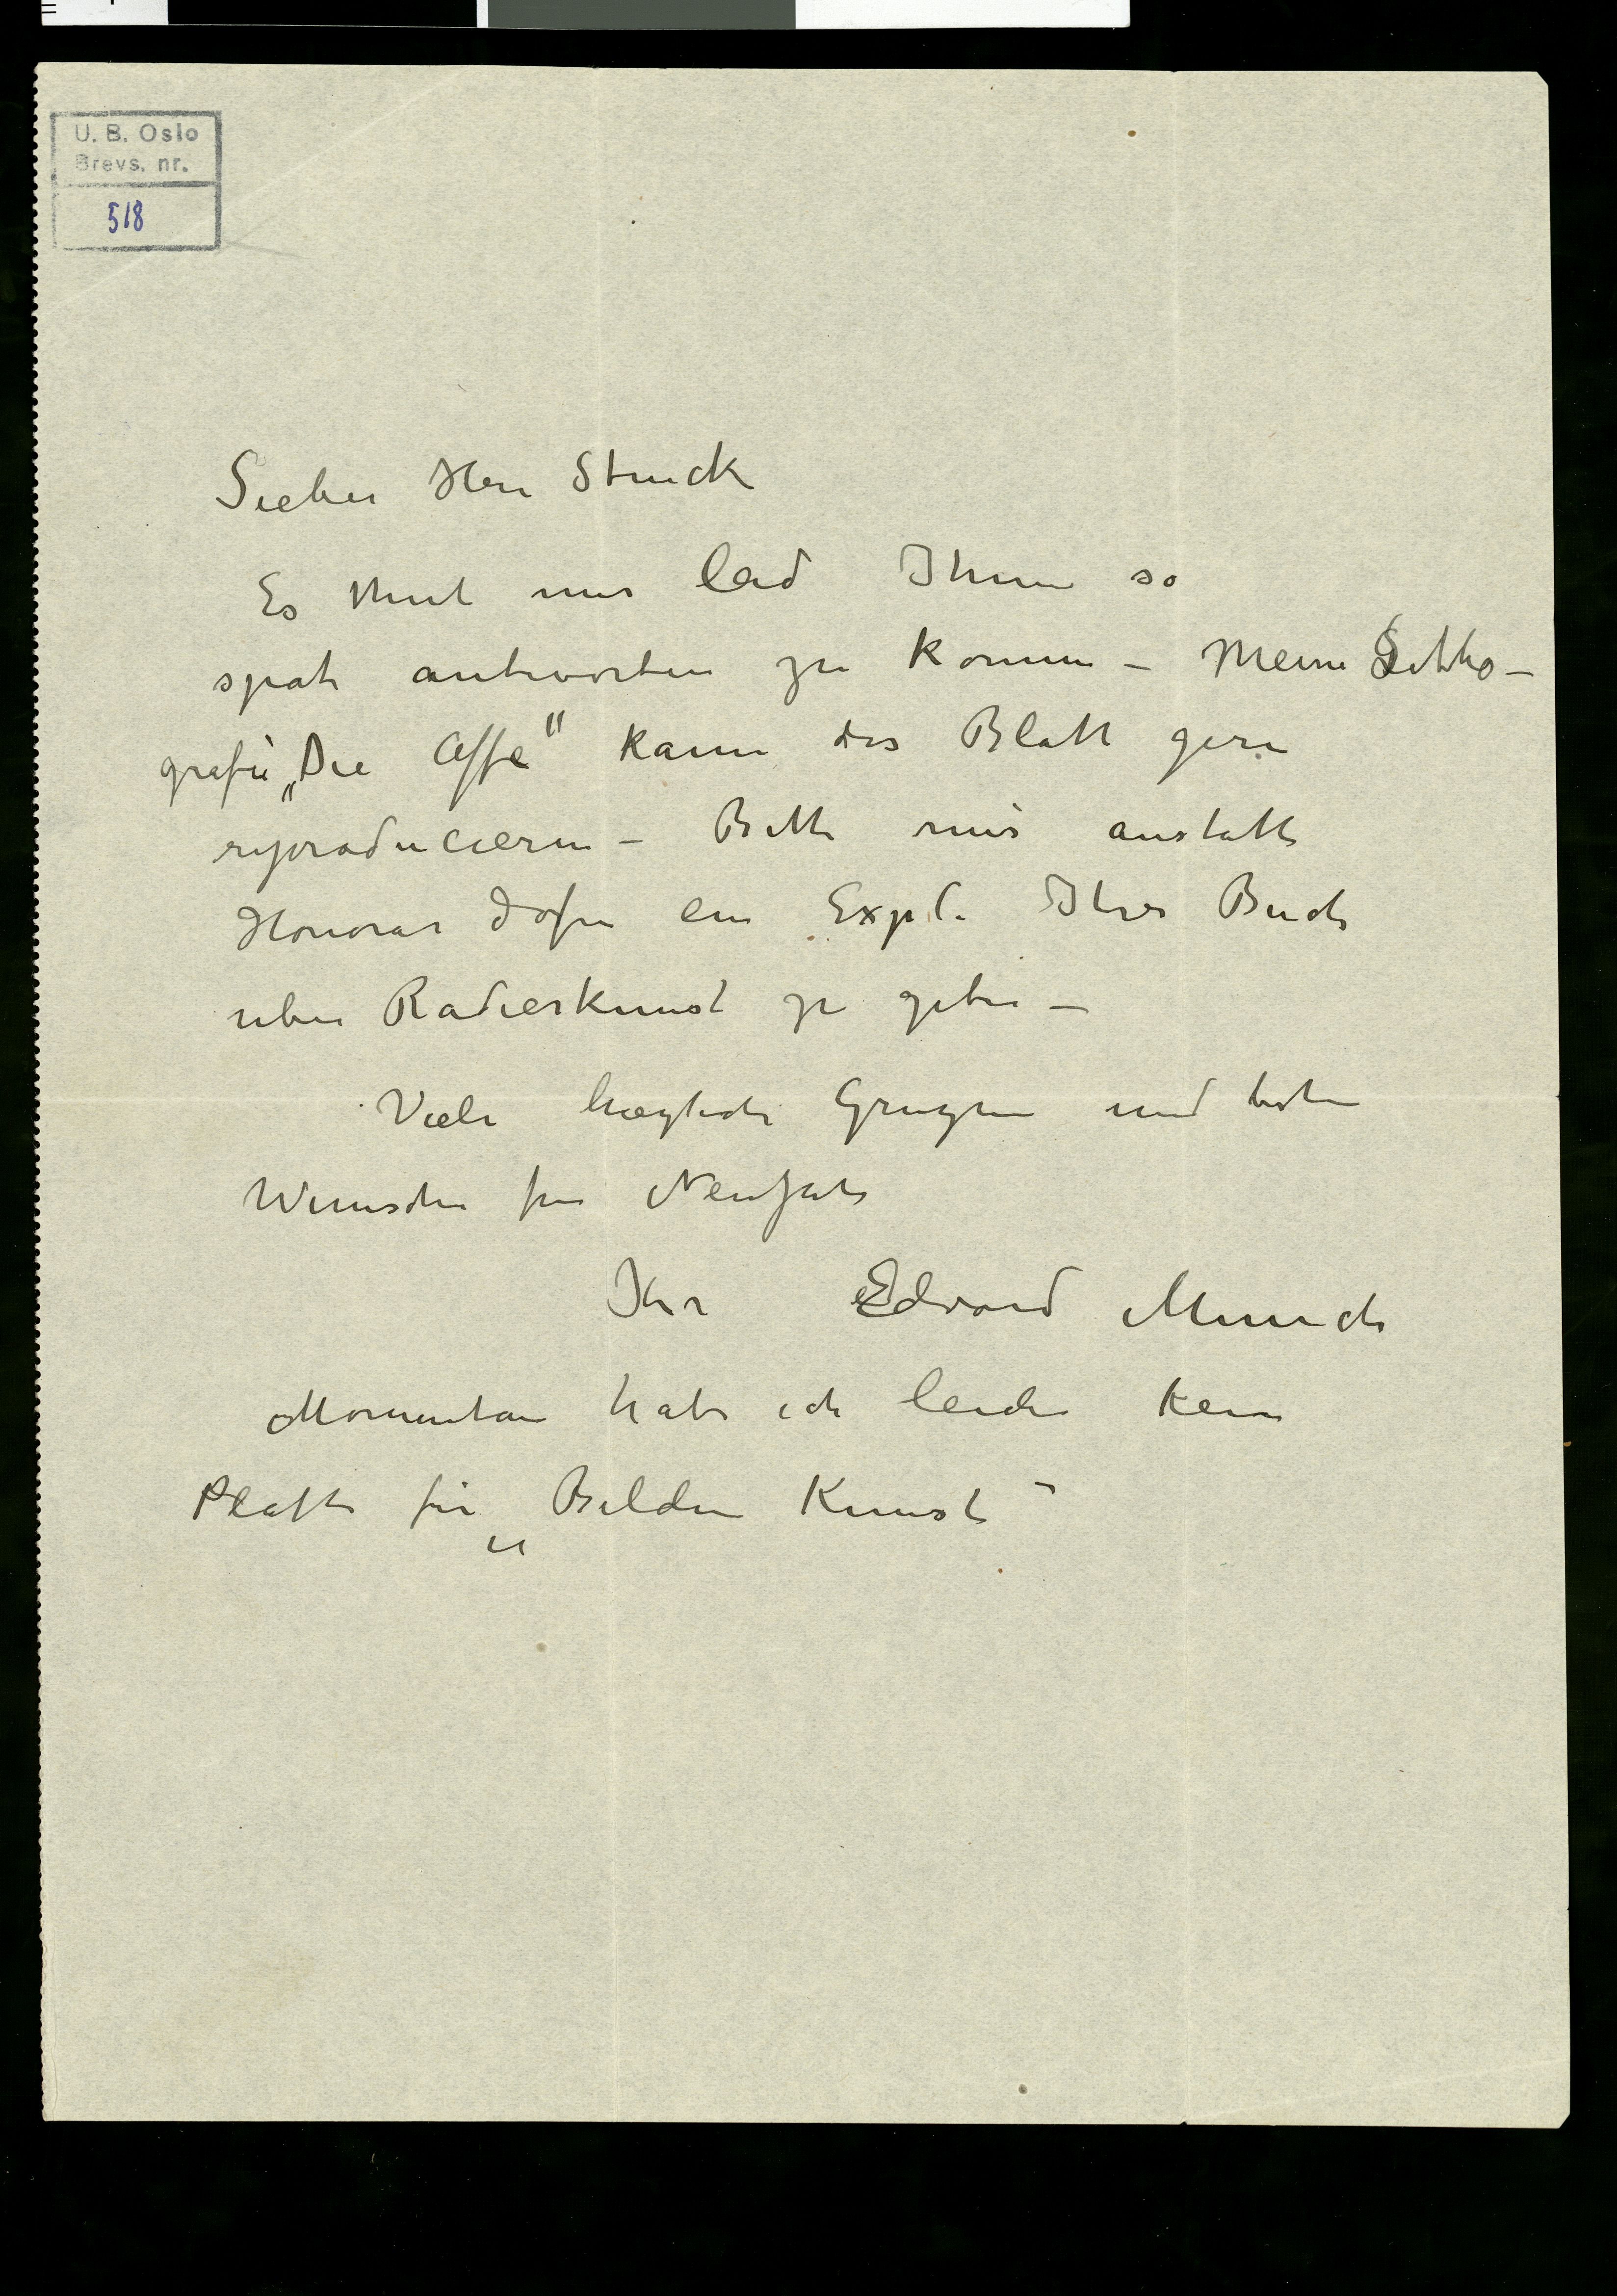 U. B. Oslo
Brevs. nr.
518
Lieber Herr Struck
Es thut mir leid Ihnen so
spät antworten zu können – Meine Litho-
grafie „Die Affe" kann das Blatt gern
reproducieren – Bitte mir anstatt
Honorar dafur ein Expl. Ihres Buch
uber Radierkunst zu geben –
Viele herzliche Gruzen und besten
Wunschen fur Neujahr
Ihr Edvard Munch
Momentan habe ich leider kein
Platte für „Bilden Kunst"